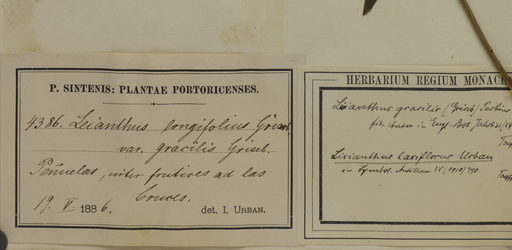 P. SINTENIS: PLANTAE PORTORICENSES.
4386. Leianthus longifolius Griseb.
var. gracilis Griseb.
Peñuelas, inter frutices ad las
Cruces.
19. V. 1886. det. I. URBAN.
HERBARIUM REGIUM MONACE
Leianthus gracilis (Griseb.)
in Engl. Bot. Jahrb.
Lisianthus laxiflorus Urban
in Symbol. Antillan. IV (1910) 490.